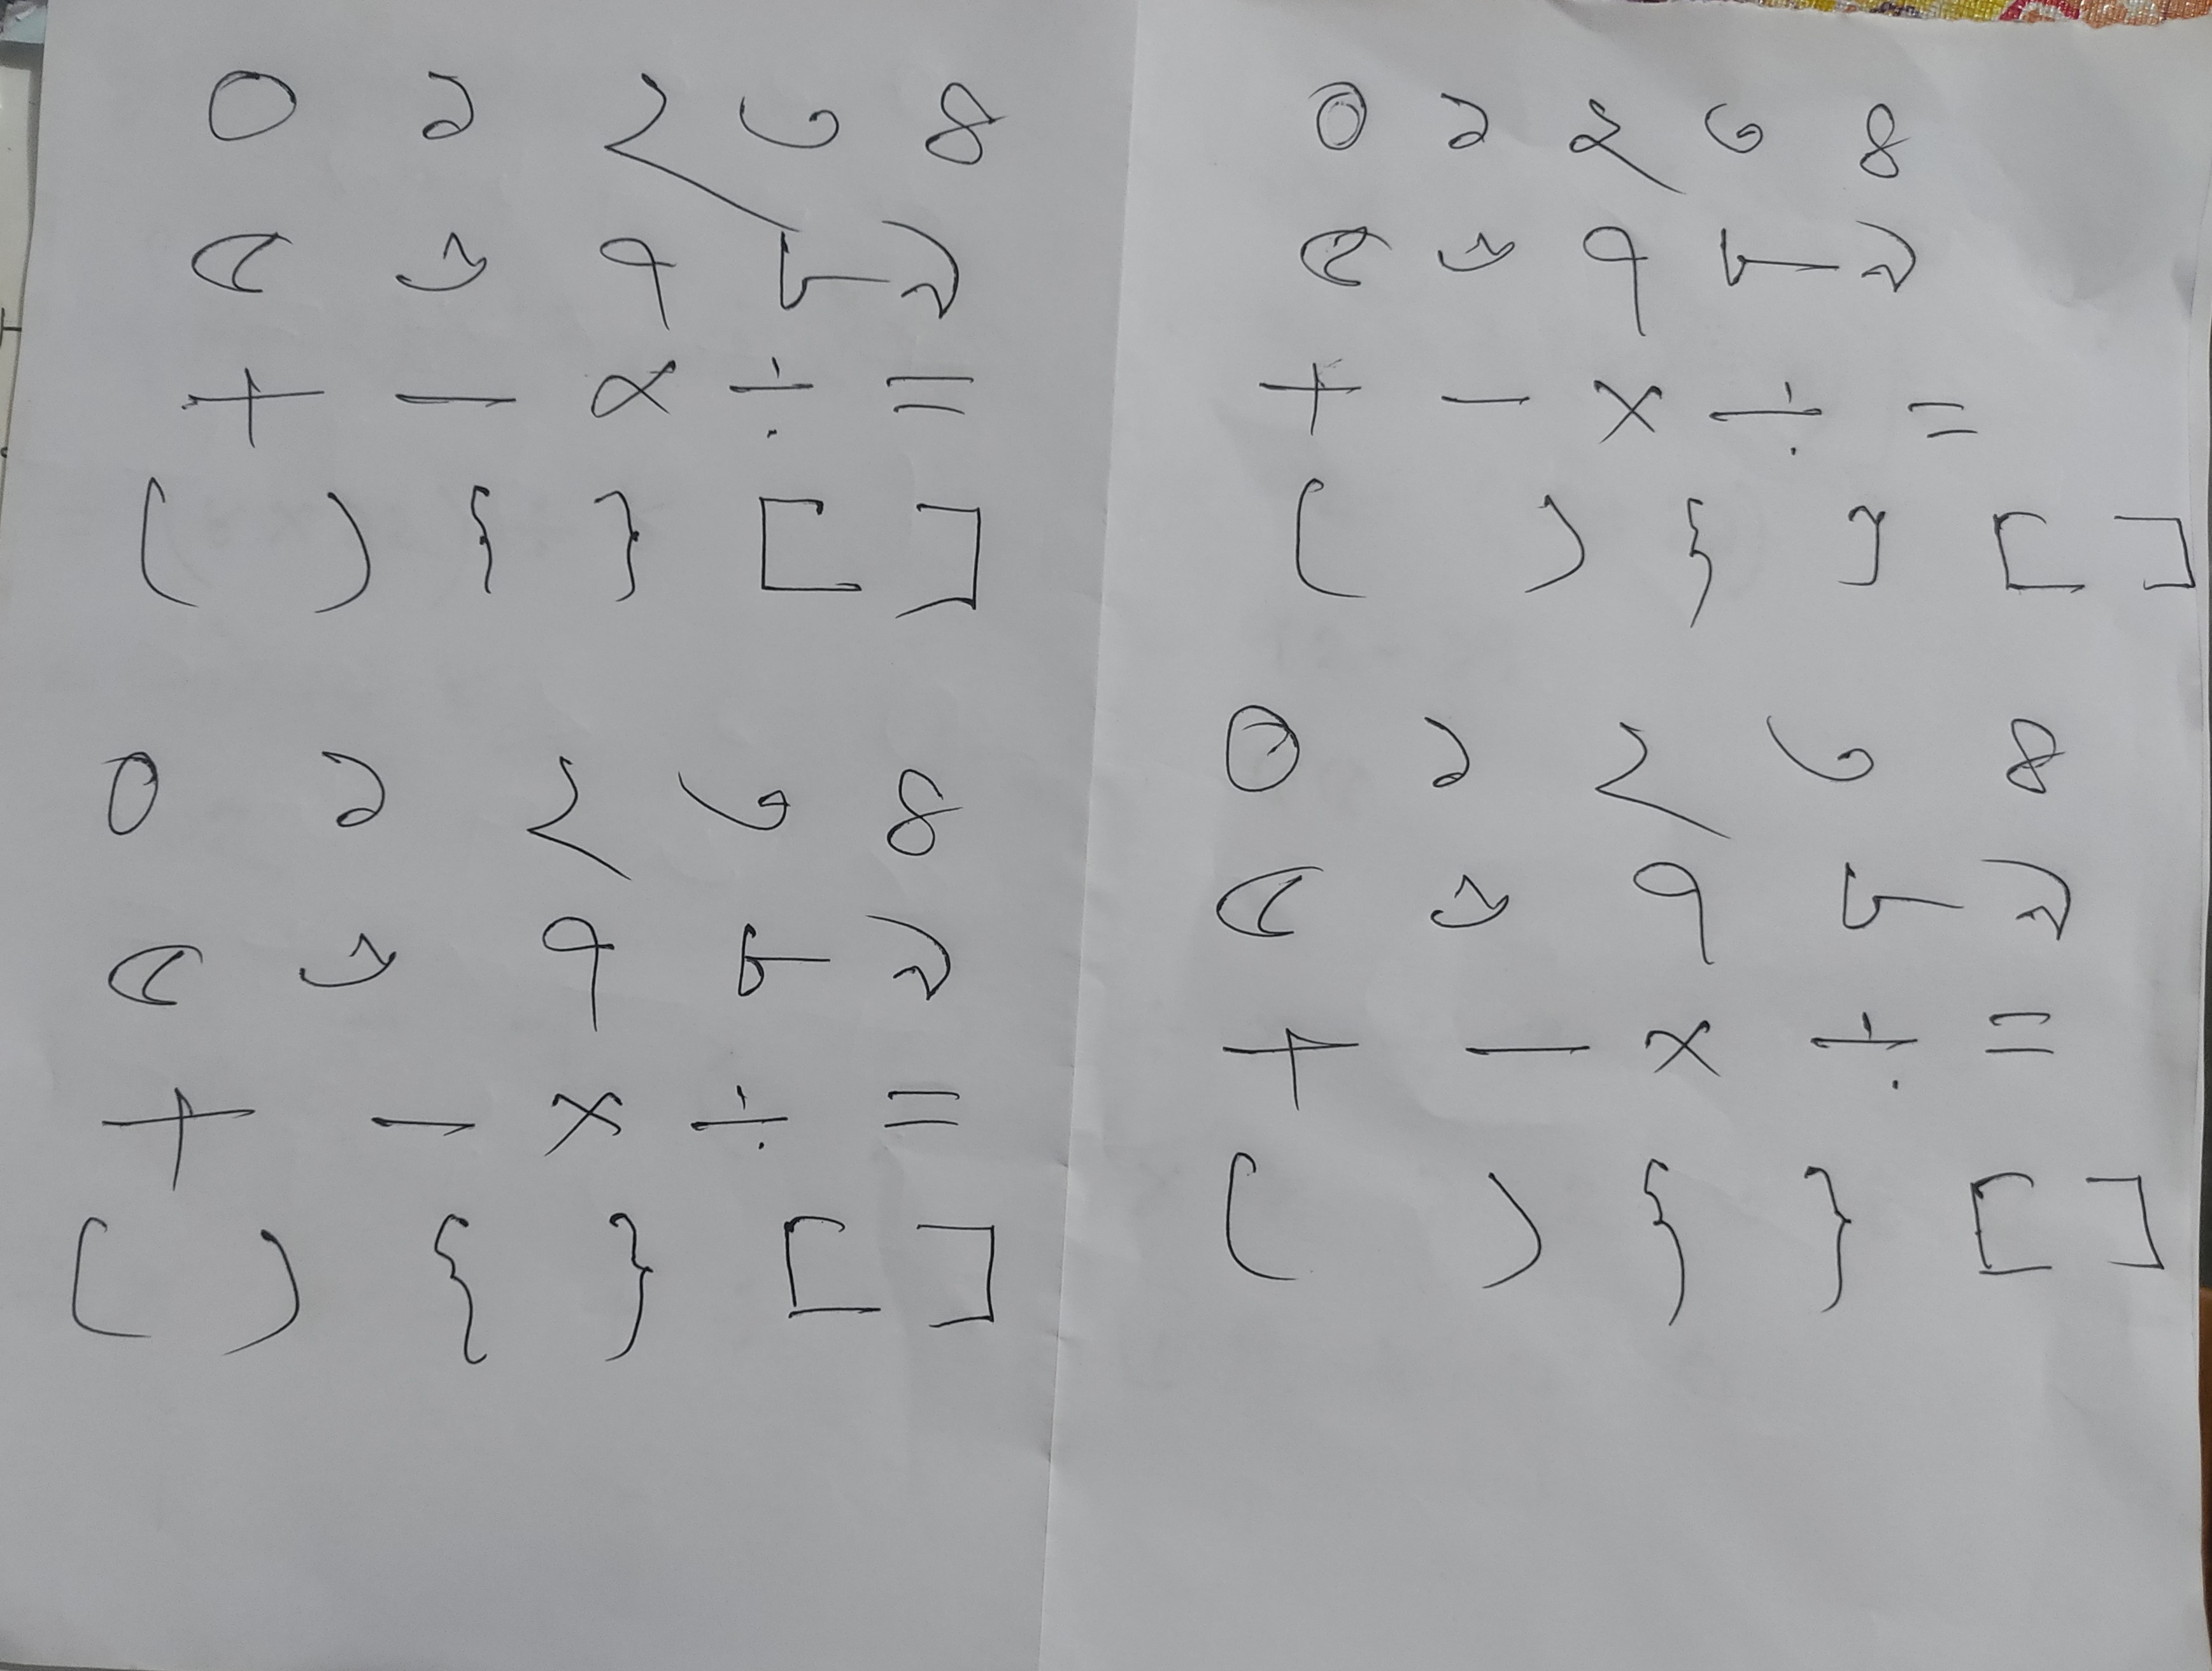 ০ ১ ২ ৩ ৪
৫ ৬ ৭ ৮ ৯
+ − × ÷ =
( ) { } [ ]
০ ১ ২ ৩ ৪
৫ ৬ ৭ ৮ ৯
+ − × ÷ =
( ) { } [ ]
০ ১ ২ ৩ ৪
৫ ৬ ৭ ৮ ৯
+ − × ÷ =
( ) { } [ ]
০ ১ ২ ৩ ৪
৫ ৬ ৭ ৮ ৯
+ − × ÷ =
( ) { } [ ]